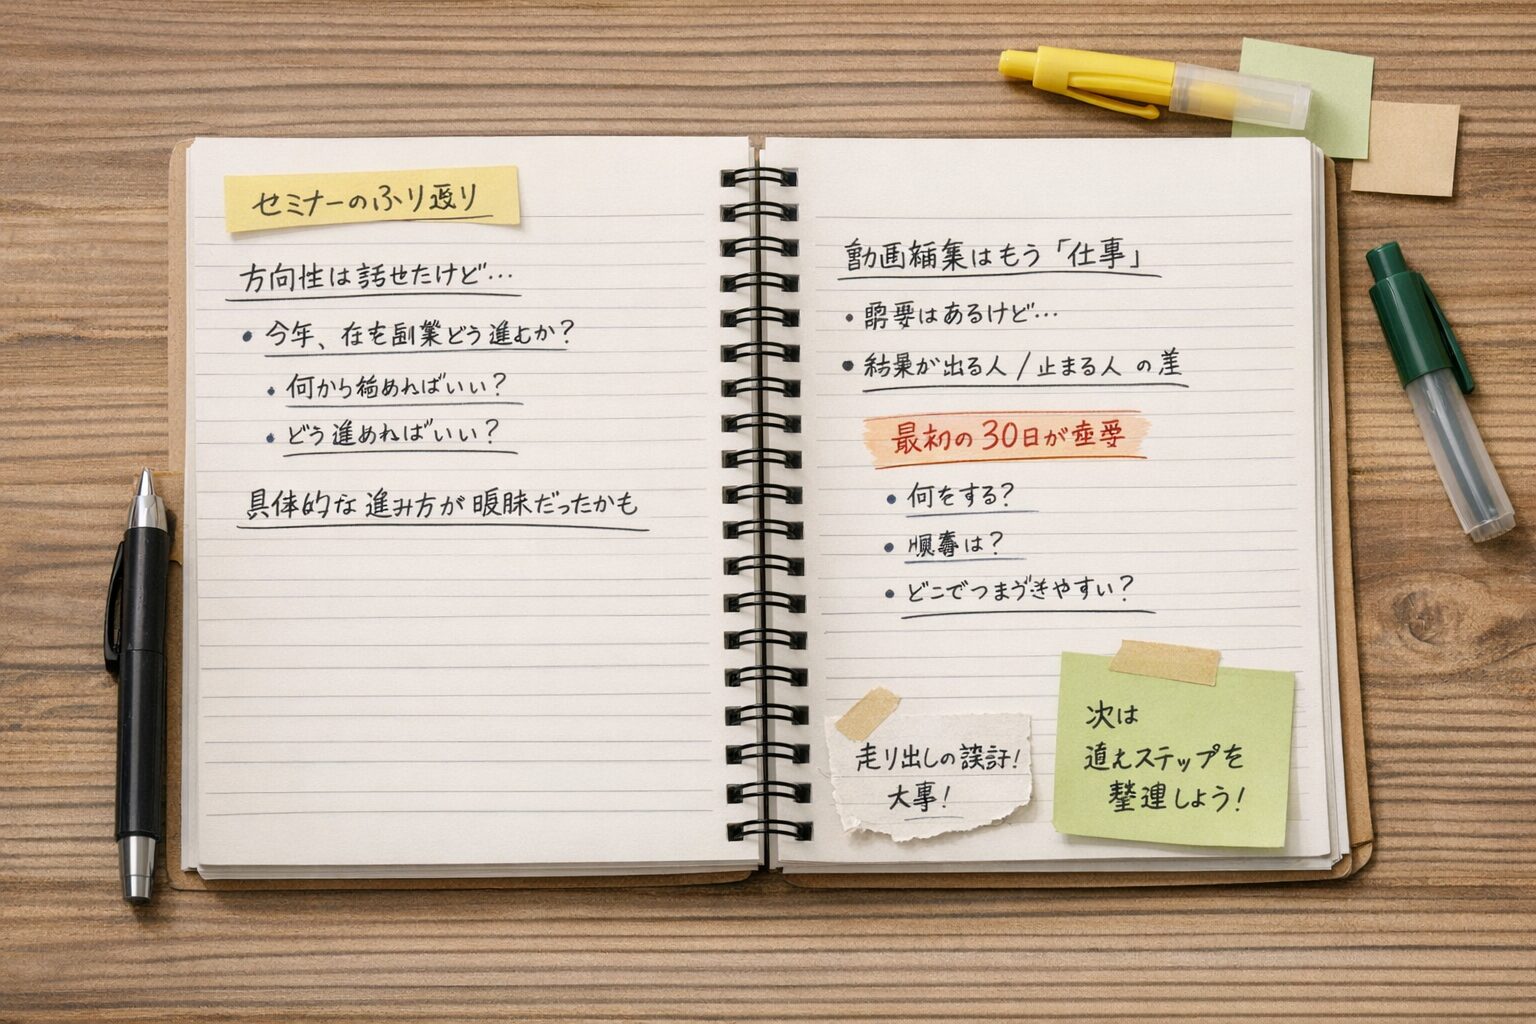 セミナーのふり返り
方向性は話せたけど…
• 今年、在宅副業どう進むか?
• 何から始めればいい?
• どう進めればいい?
具体的な進み方が曖昧だったかも
動画編集はもう「仕事」
• 需要はあるけど…
• 結果が出る人 / 止まる人 の差
最初の30日が重要
• 何をする?
• は?
• どこでつまづきやすい?
走り出しの設計!
大事!
次は
ステップを
しよう!